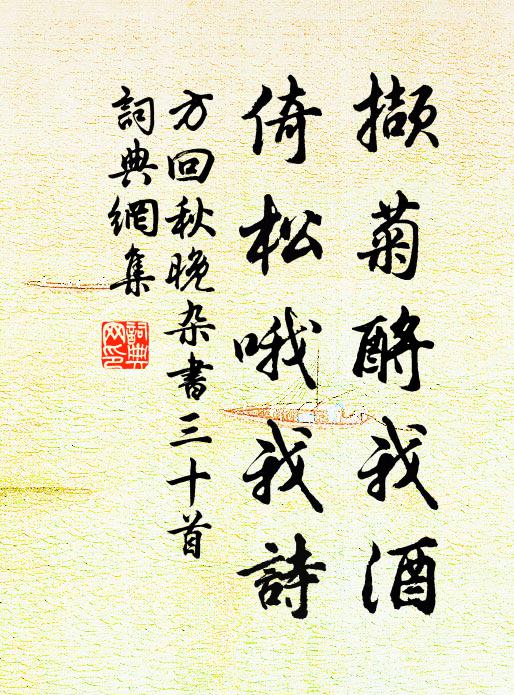 擷菊酧我酒
倚松哦我詩
方回秋晚杂書三十首
詞典網集
詞典网印